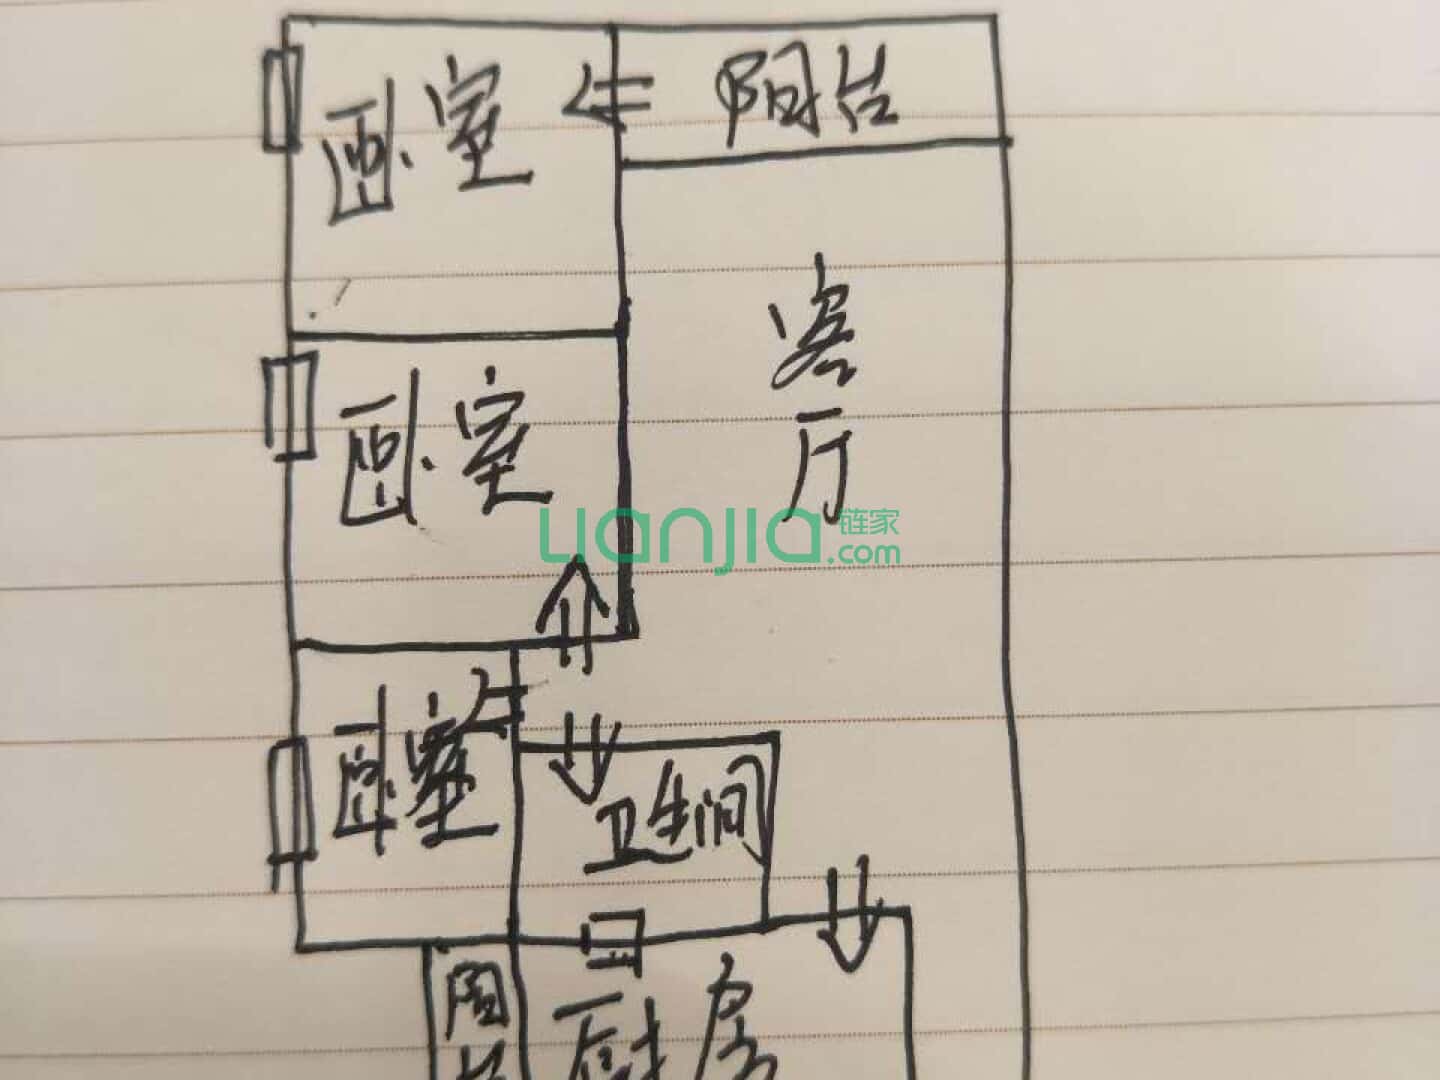 卧室
阳台
客厅
卧室
lianjia链家.com
卧室
卫生间
阳台
厨房